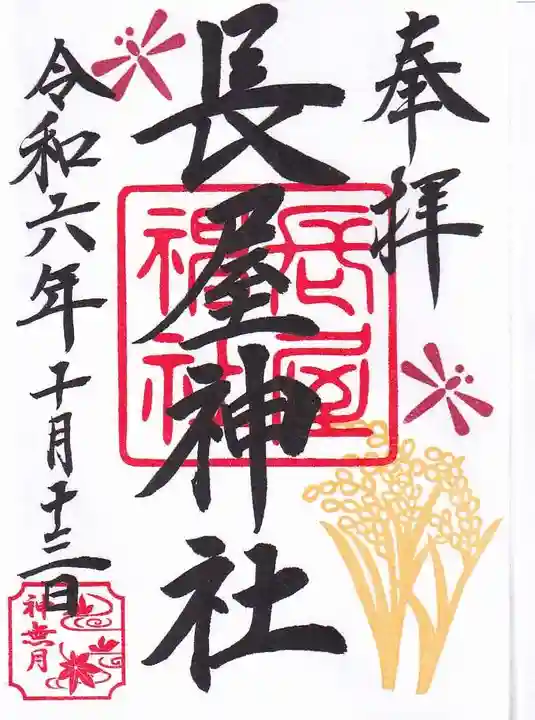 奉拝
長屋神社
長屋神社
令和六年十月十三日
神無月